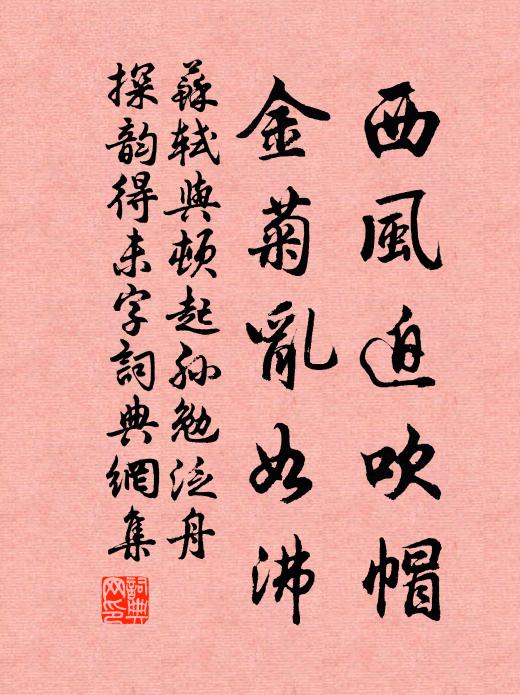 西風迫吹帽
金菊亂如沸
蘇軾與頓起孫勉泛舟
探韵得未字詞典網集
詞典網印